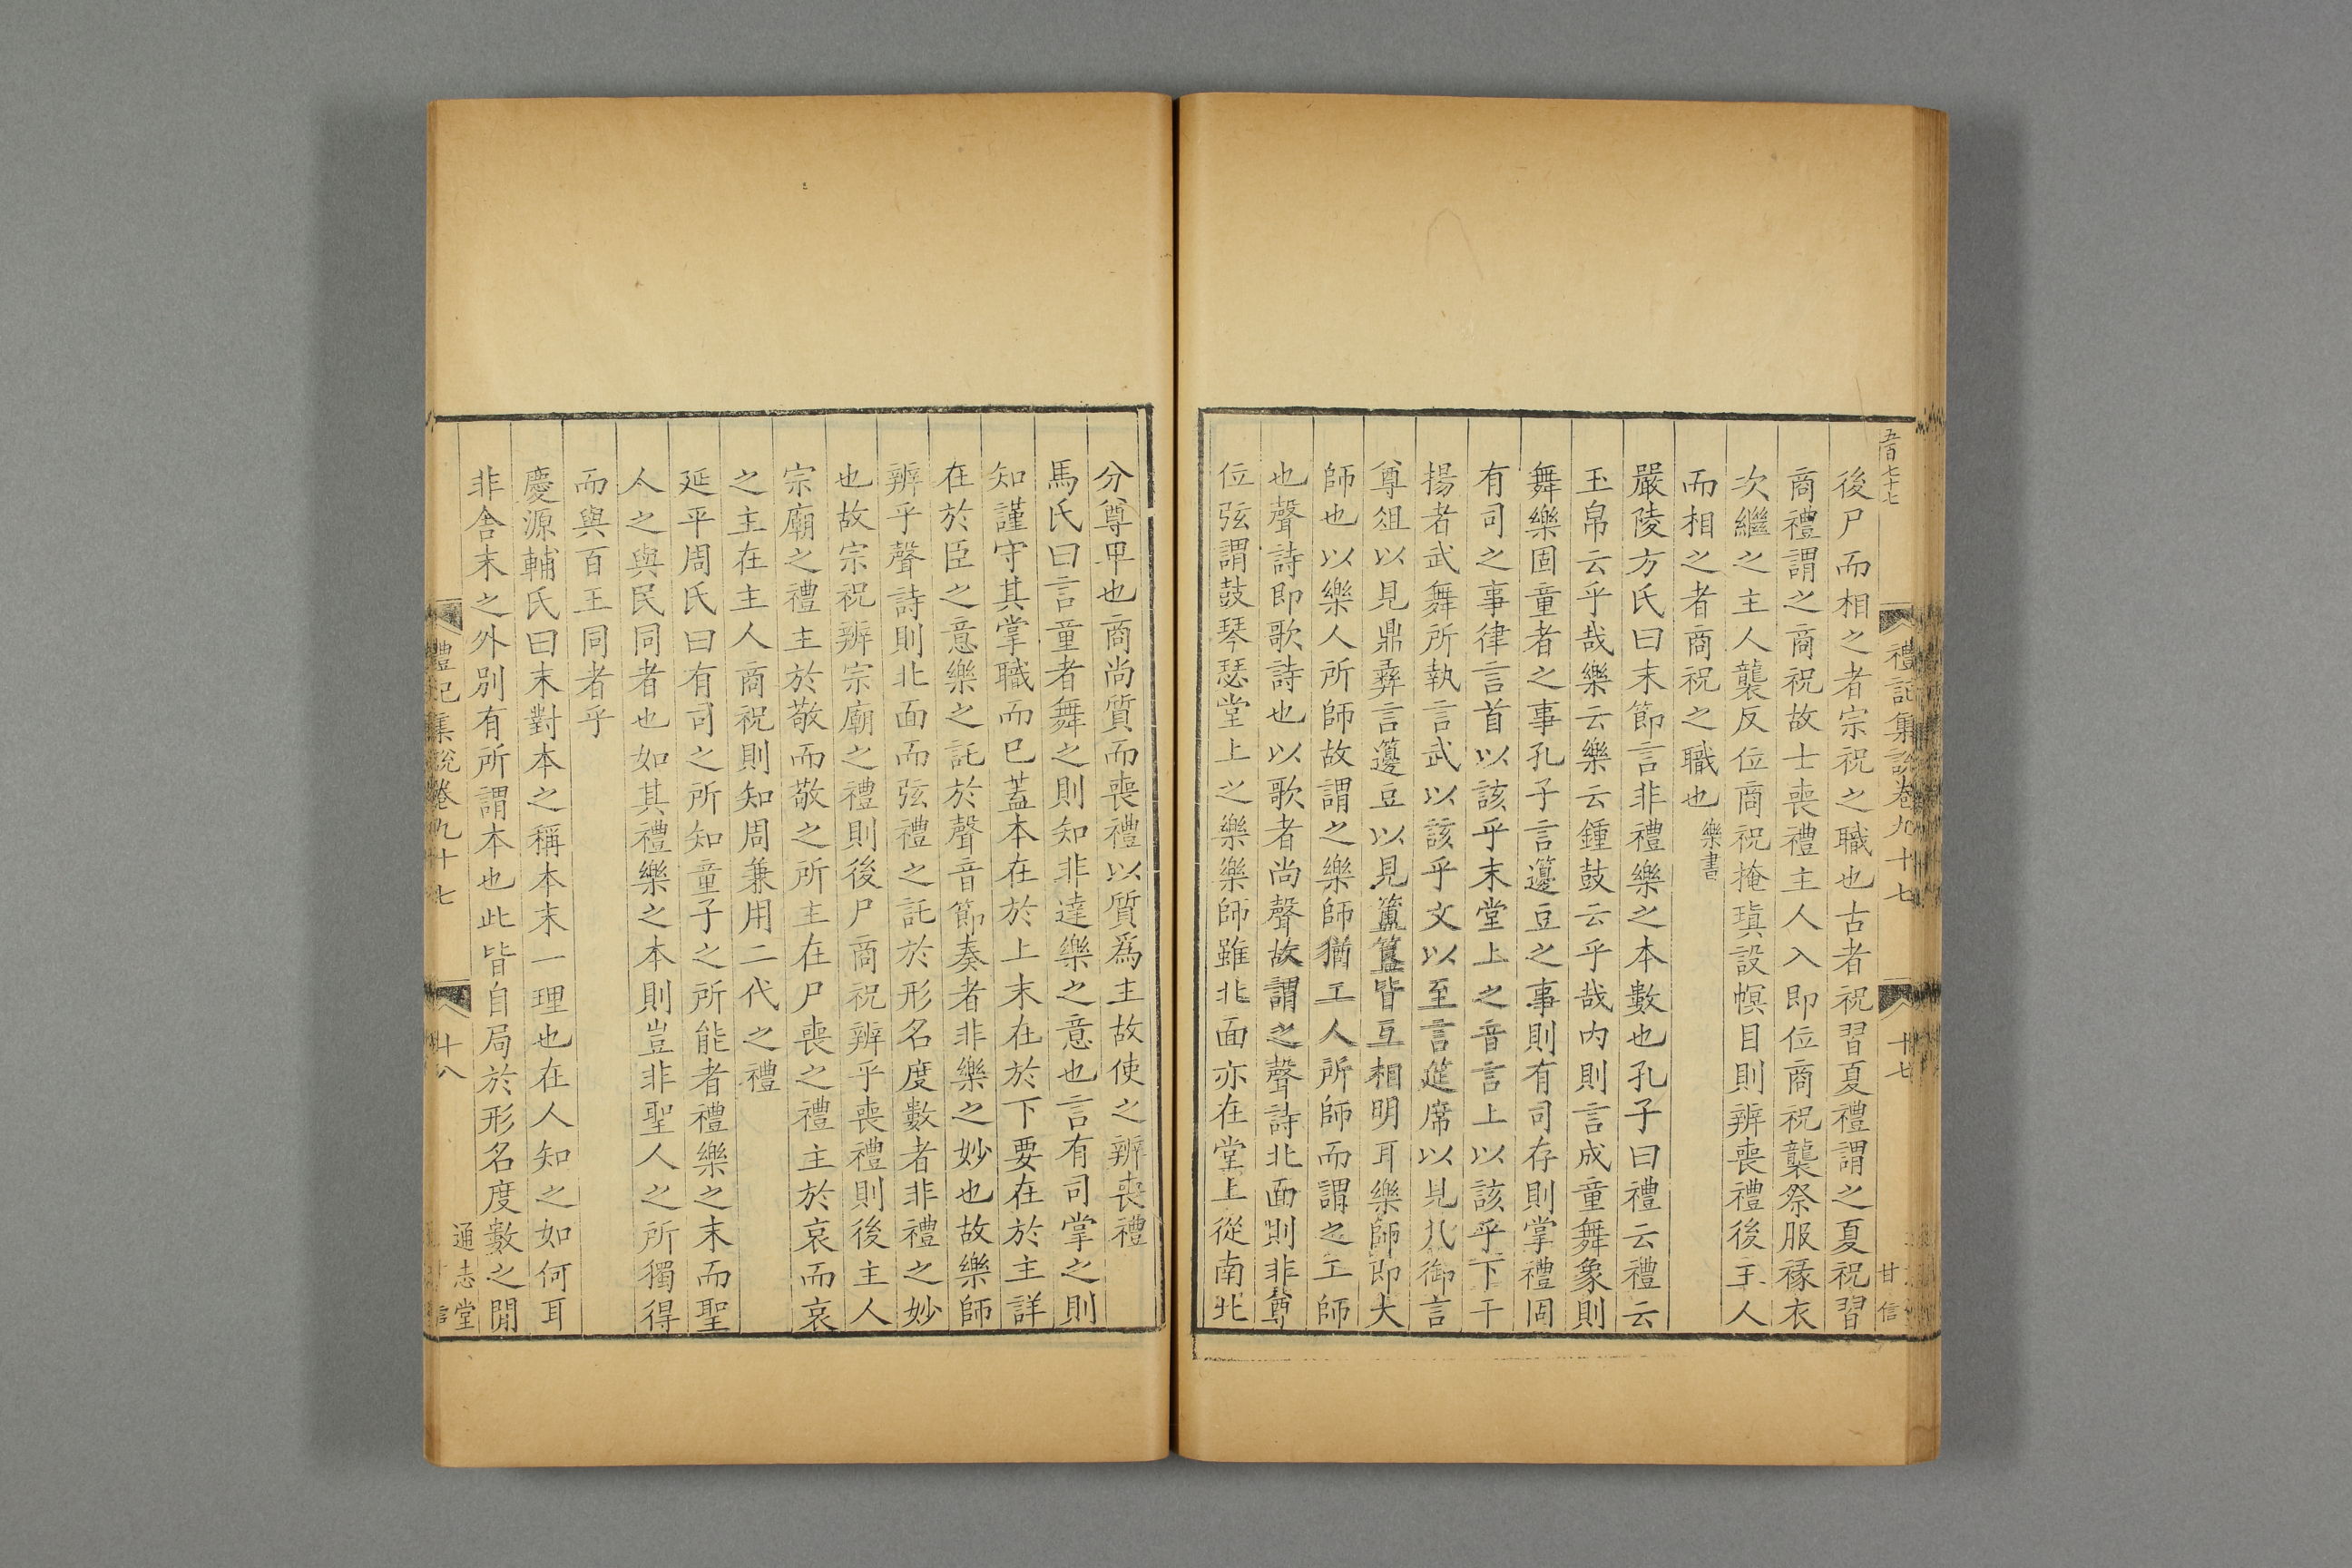 五百七十七
禮記集說卷九十七
十七
甘信
後尸而相之者宗祝之職也古者祝習夏禮謂之夏祝習
商禮謂之商祝故士喪禮主人入即位商祝襲祭服褖衣
次繼之主人襲反位商祝掩瑱設幎目則辨喪禮後主人
而相之者商祝之職也樂書
嚴陵方氏曰末節言非禮樂之本數也孔子曰禮云禮云
玉帛云乎哉樂云樂云鍾鼓云乎哉内則言成童舞象則
舞樂固童者之事孔子言籩豆之事則有司存則掌禮固
有司之事律言首以該乎末堂上之音言上以該乎下干
揚者武舞所執言武以該乎文以至言筵席以見几御言
尊俎以見鼎彝言籩豆以見簠簋皆互相明耳樂師即大
師也以樂人所師故謂之樂師猶工人所師而謂之工師
也聲詩即歌詩也以歌者尚聲故謂之聲詩北面則非尊
位弦謂鼓琴瑟堂上之樂樂師雖北面亦在堂上從南北
分尊卑也商尚質而喪禮以質爲主故使之辨喪禮
馬氏曰言童者舞之則知非達樂之意也言有司掌之則
知謹守其掌職而已蓋本在於上末在於下要在於主詳
在於臣之意樂之託於聲音節奏者非樂之妙也故樂師
辨乎聲詩則北面而弦禮之託於形名度數者非禮之妙
也故宗祝辨宗廟之禮則後尸商祝辨乎喪禮則後主人
宗廟之禮主於敬而敬之所主在尸喪之禮主於哀而哀
之主在主人商祝則知周兼用二代之禮
延平周氏曰有司之所知童子之所能者禮樂之末而聖
人之與民同者也如其禮樂之本則豈非聖人之所獨得
而與百王同者乎
慶源輔氏曰末對本之稱本末一理也在人知之如何耳
非舍末之外別有所謂本也此皆自局於形名度數之閒
禮記集說卷九十七
十八
通志堂